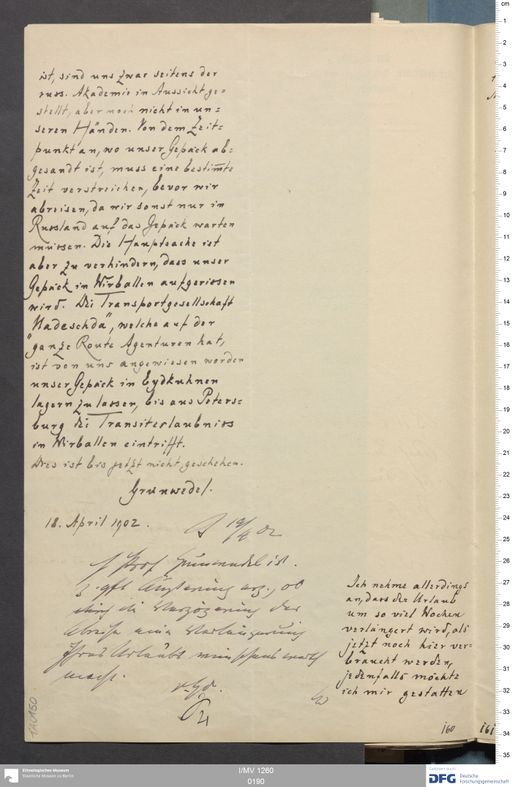 ist, sind uns zwar seitens der
russ. Akademie in Aussicht ge=
stellt, aber noch nicht in un=
seren Händen. Von dem Zeit=
punkt an, wo unser Gepäck ab=
gesandt ist, muss eine bestimmte
Zeit verstreichen, bevor wir
abreisen, da wir sonst nur in
Russland auf das Gepäck warten
müssen. Die Hauptsache ist
aber zu verhindern, dass unser
Gepäck in Wirballen aufgerissen
wird. Die Transportgesellschaft
"Nadeschda", welche auf der
ganze Route Agenturen hat,
ist von uns angewiesen worden
unser Gepäck in Eydkuhnen
lagern zu lassen, bis aus Peters=
burg die Transiterlaubniss
in Wirballen eintrifft.
Dies ist bis jetzt nicht geschehen.
Grünwedel.
18. April 1902.
18/4 02
Prof. Grünwedel ist.
z. gfl. Äußerung erg., ob
die Verzögerung der
Abreise eine Verlängerung
Ihres Urlaubs wünschenswerth
macht.
Ich nehme allerdings
an, dass der Urlaub
um so viel Wochen
verlängert wird, als
jetzt noch hier ver=
braucht werden,
jedenfalls möchte
ich mir gestatten
160
161
cm
1
2
3
4
5
6
7
8
9
10
11
12
13
14
15
16
17
18
19
20
21
22
23
24
25
26
27
28
29
30
31
32
33
34
35
Ethnologisches Museum
Staatliche Museen zu Berlin
I/MV 1260
0190
DFG
Deutsche
Forschungsgemeinschaft